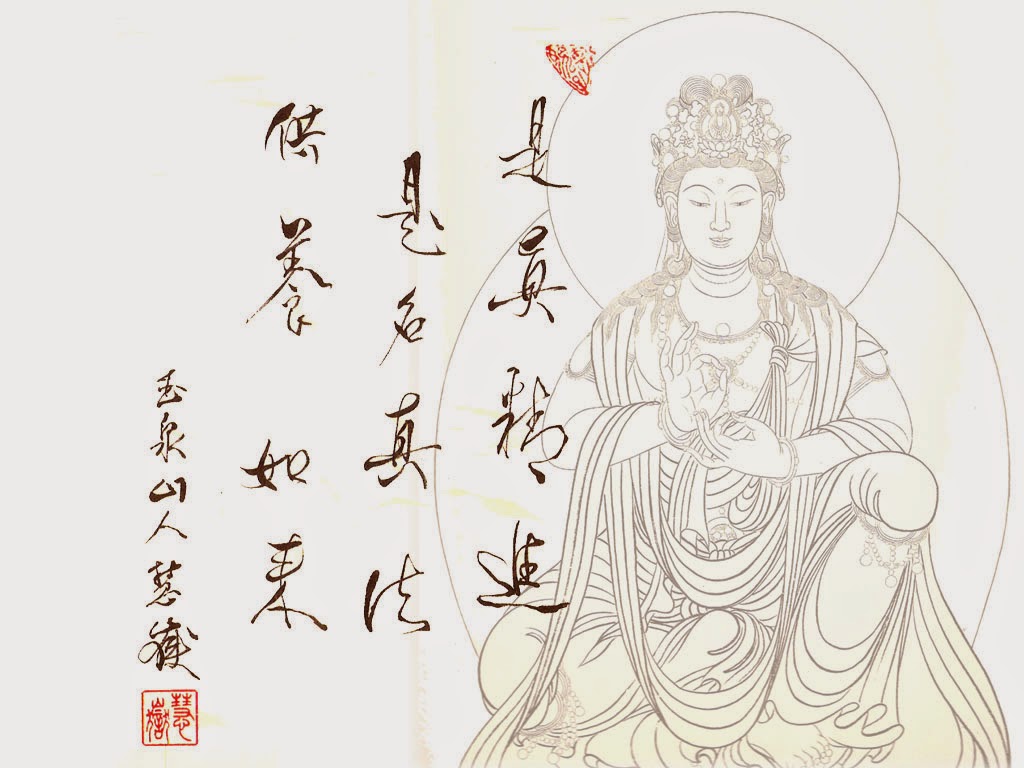 是真精進
是名真法
供養如来
玉泉山人慧嶽
慧嶽